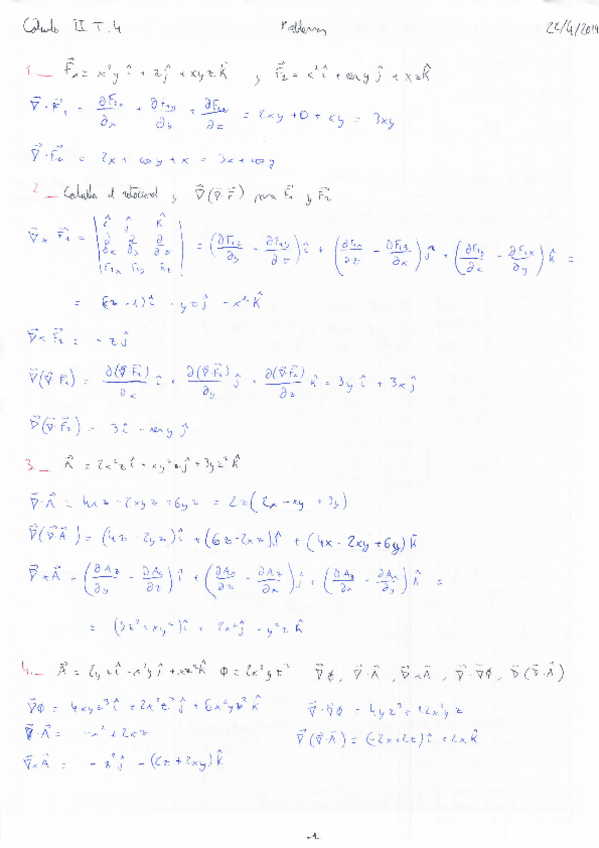 Cálculo II T.4 Problemas 22/4/2014
1._ F⃗₁ = x²y î + z ĵ + xyz k̂ , F⃗₂ = x² î + sen y ĵ + xz k̂
∇⃗·F⃗₁ = ∂F₁ₓ/∂x + ∂F₁y/∂y + ∂F₁z/∂z = 2xy + 0 + xy = 3xy
∇⃗·F⃗₂ = 2x + cos y + x = 3x + cos y
2._ Calcula el rotacional y ∇⃗(∇⃗·F⃗) para F⃗₁ y F⃗₂
∇⃗× F⃗₁ = | î ĵ k̂ ; ∂/∂x ∂/∂y ∂/∂z ; F₁ₓ F₁y F₁z | = (∂F₁z/∂y - ∂F₁y/∂z) î + (∂F₁ₓ/∂z - ∂F₁z/∂x) ĵ + (∂F₁y/∂x - ∂F₁ₓ/∂y) k̂ =
= (xz - 1) î - yz ĵ - x² k̂
∇⃗×F⃗₂ = - z ĵ
∇⃗(∇⃗·F⃗₁) = ∂(∇⃗·F⃗₁)/∂x î + ∂(∇⃗·F⃗₁)/∂y ĵ + ∂(∇⃗·F⃗₁)/∂z k̂ = 3y î + 3x ĵ
∇⃗(∇⃗·F⃗₂) = 3 î - sen y ĵ
3._ A⃗ = 2x²z î - xy²z ĵ + 3yz² k̂
∇⃗·A⃗ = 4xz - 2xyz + 6yz = 2z(2x - xy + 3y)
∇⃗(∇⃗·A⃗) = (4z - 2yz) î + (6z - 2xz) ĵ + (4x - 2xy + 6y) k̂
∇⃗×A⃗ = (∂Az/∂y - ∂Ay/∂z) î + (∂Aₓ/∂z - ∂Az/∂x) ĵ + (∂Ay/∂x - ∂Aₓ/∂y) k̂ =
= (3z² + xy²) î + 2x² ĵ - y²z k̂
4._ A⃗ = 2yz î - x²y ĵ + xz² k̂ Φ = 2x²yz³ ∇⃗Φ, ∇⃗·A⃗, ∇⃗×A⃗, ∇⃗·∇⃗Φ, ∇⃗(∇⃗·A⃗)
∇⃗Φ = 4xyz³ î + 2x²z³ ĵ + 6x²yz² k̂ ∇⃗·∇⃗Φ = 4yz³ + 12x²yz
∇⃗·A⃗ = -x² + 2xz ∇⃗(∇⃗·A⃗) = (-2x + 2z) î + 2x k̂
∇⃗×A⃗ = - z² ĵ - (2z + 2xy) k̂